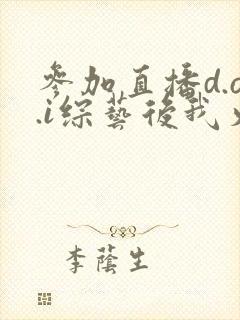 参加直播d.o
.i综艺後我
李蔭生